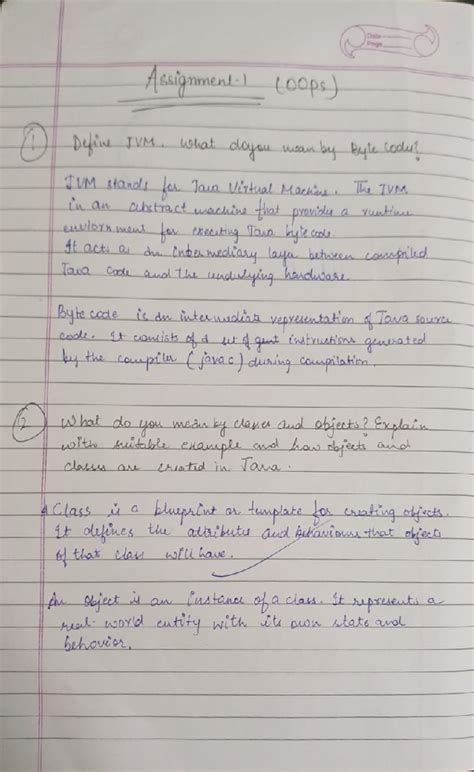 Date
Page
Assignment-1 (OOPs)
1 Define JVM. What do you mean by Byte codes?
JVM stands for Java Virtual Machine. The JVM
is an abstract machine that provides a runtime
enviornment for executing Java bytecode.
It acts as an intermediary layer between compiled
Java code and the underlying hardware.
Byte code is an intermediate representation of Java source
code. It consists of a set of instructions generated
by the compiler (javac) during compilation.
2 What do you mean by classes and objects? Explain
with suitable example and how objects and
classes are created in Java.
A Class is a blueprint or template for creating objects.
It defines the attributes and behaviours that objects
of that class will have.
An object is an instance of a class. It represents a
real-world entity with its own state and
behavior.